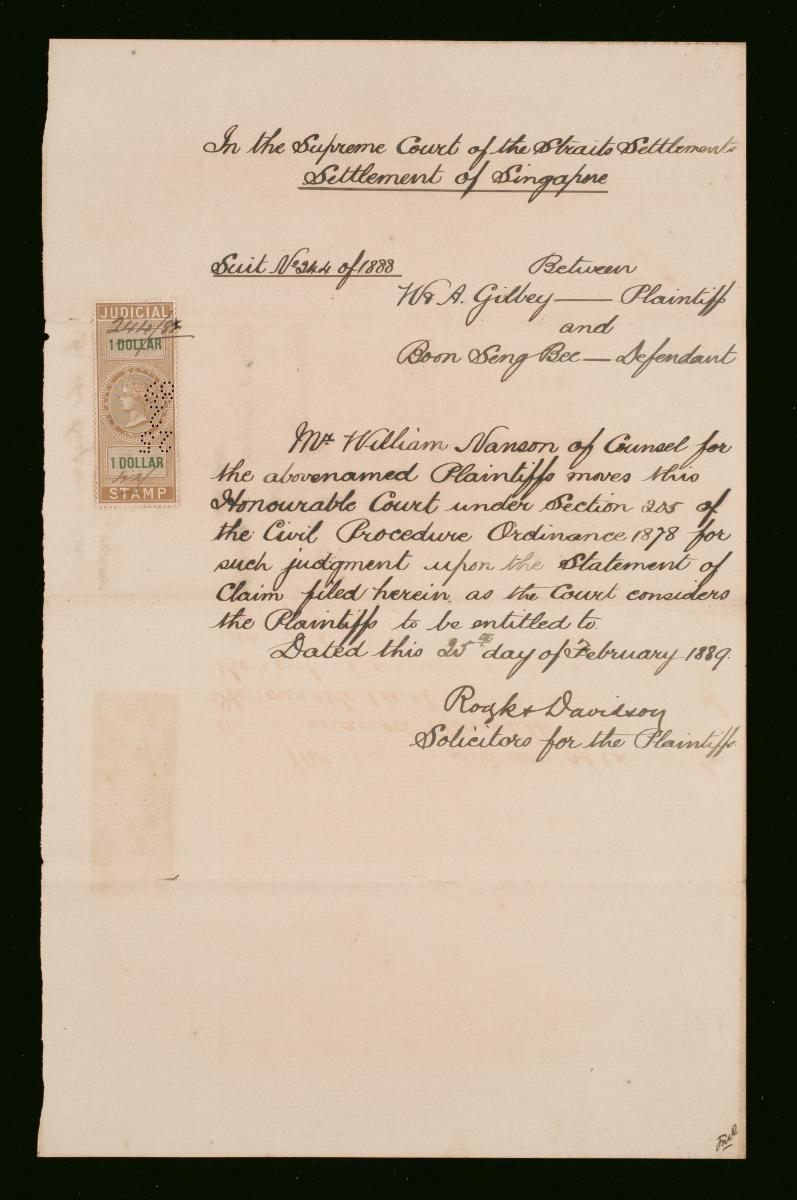 In the Supreme Court of the Straits Settlements
Settlement of Singapore
Suit No 244 of 1888
Between
W & A. Gilbey — Plaintiff
and
Boon Seng Bee — Defendant
JUDICIAL
244/88
1 DOLLAR
1 DOLLAR
STAMP
Mr William Nanson of Counsel for
the abovenamed Plaintiffs moves this
Honourable Court under Section 205 of
the Civil Procedure Ordinance 1878 for
such judgment upon the Statement of
Claim filed herein as the Court considers
the Plaintiffs to be entitled to.
Dated this 25th day of February 1889.
Rodyk & Davidson
Solicitors for the Plaintiffs